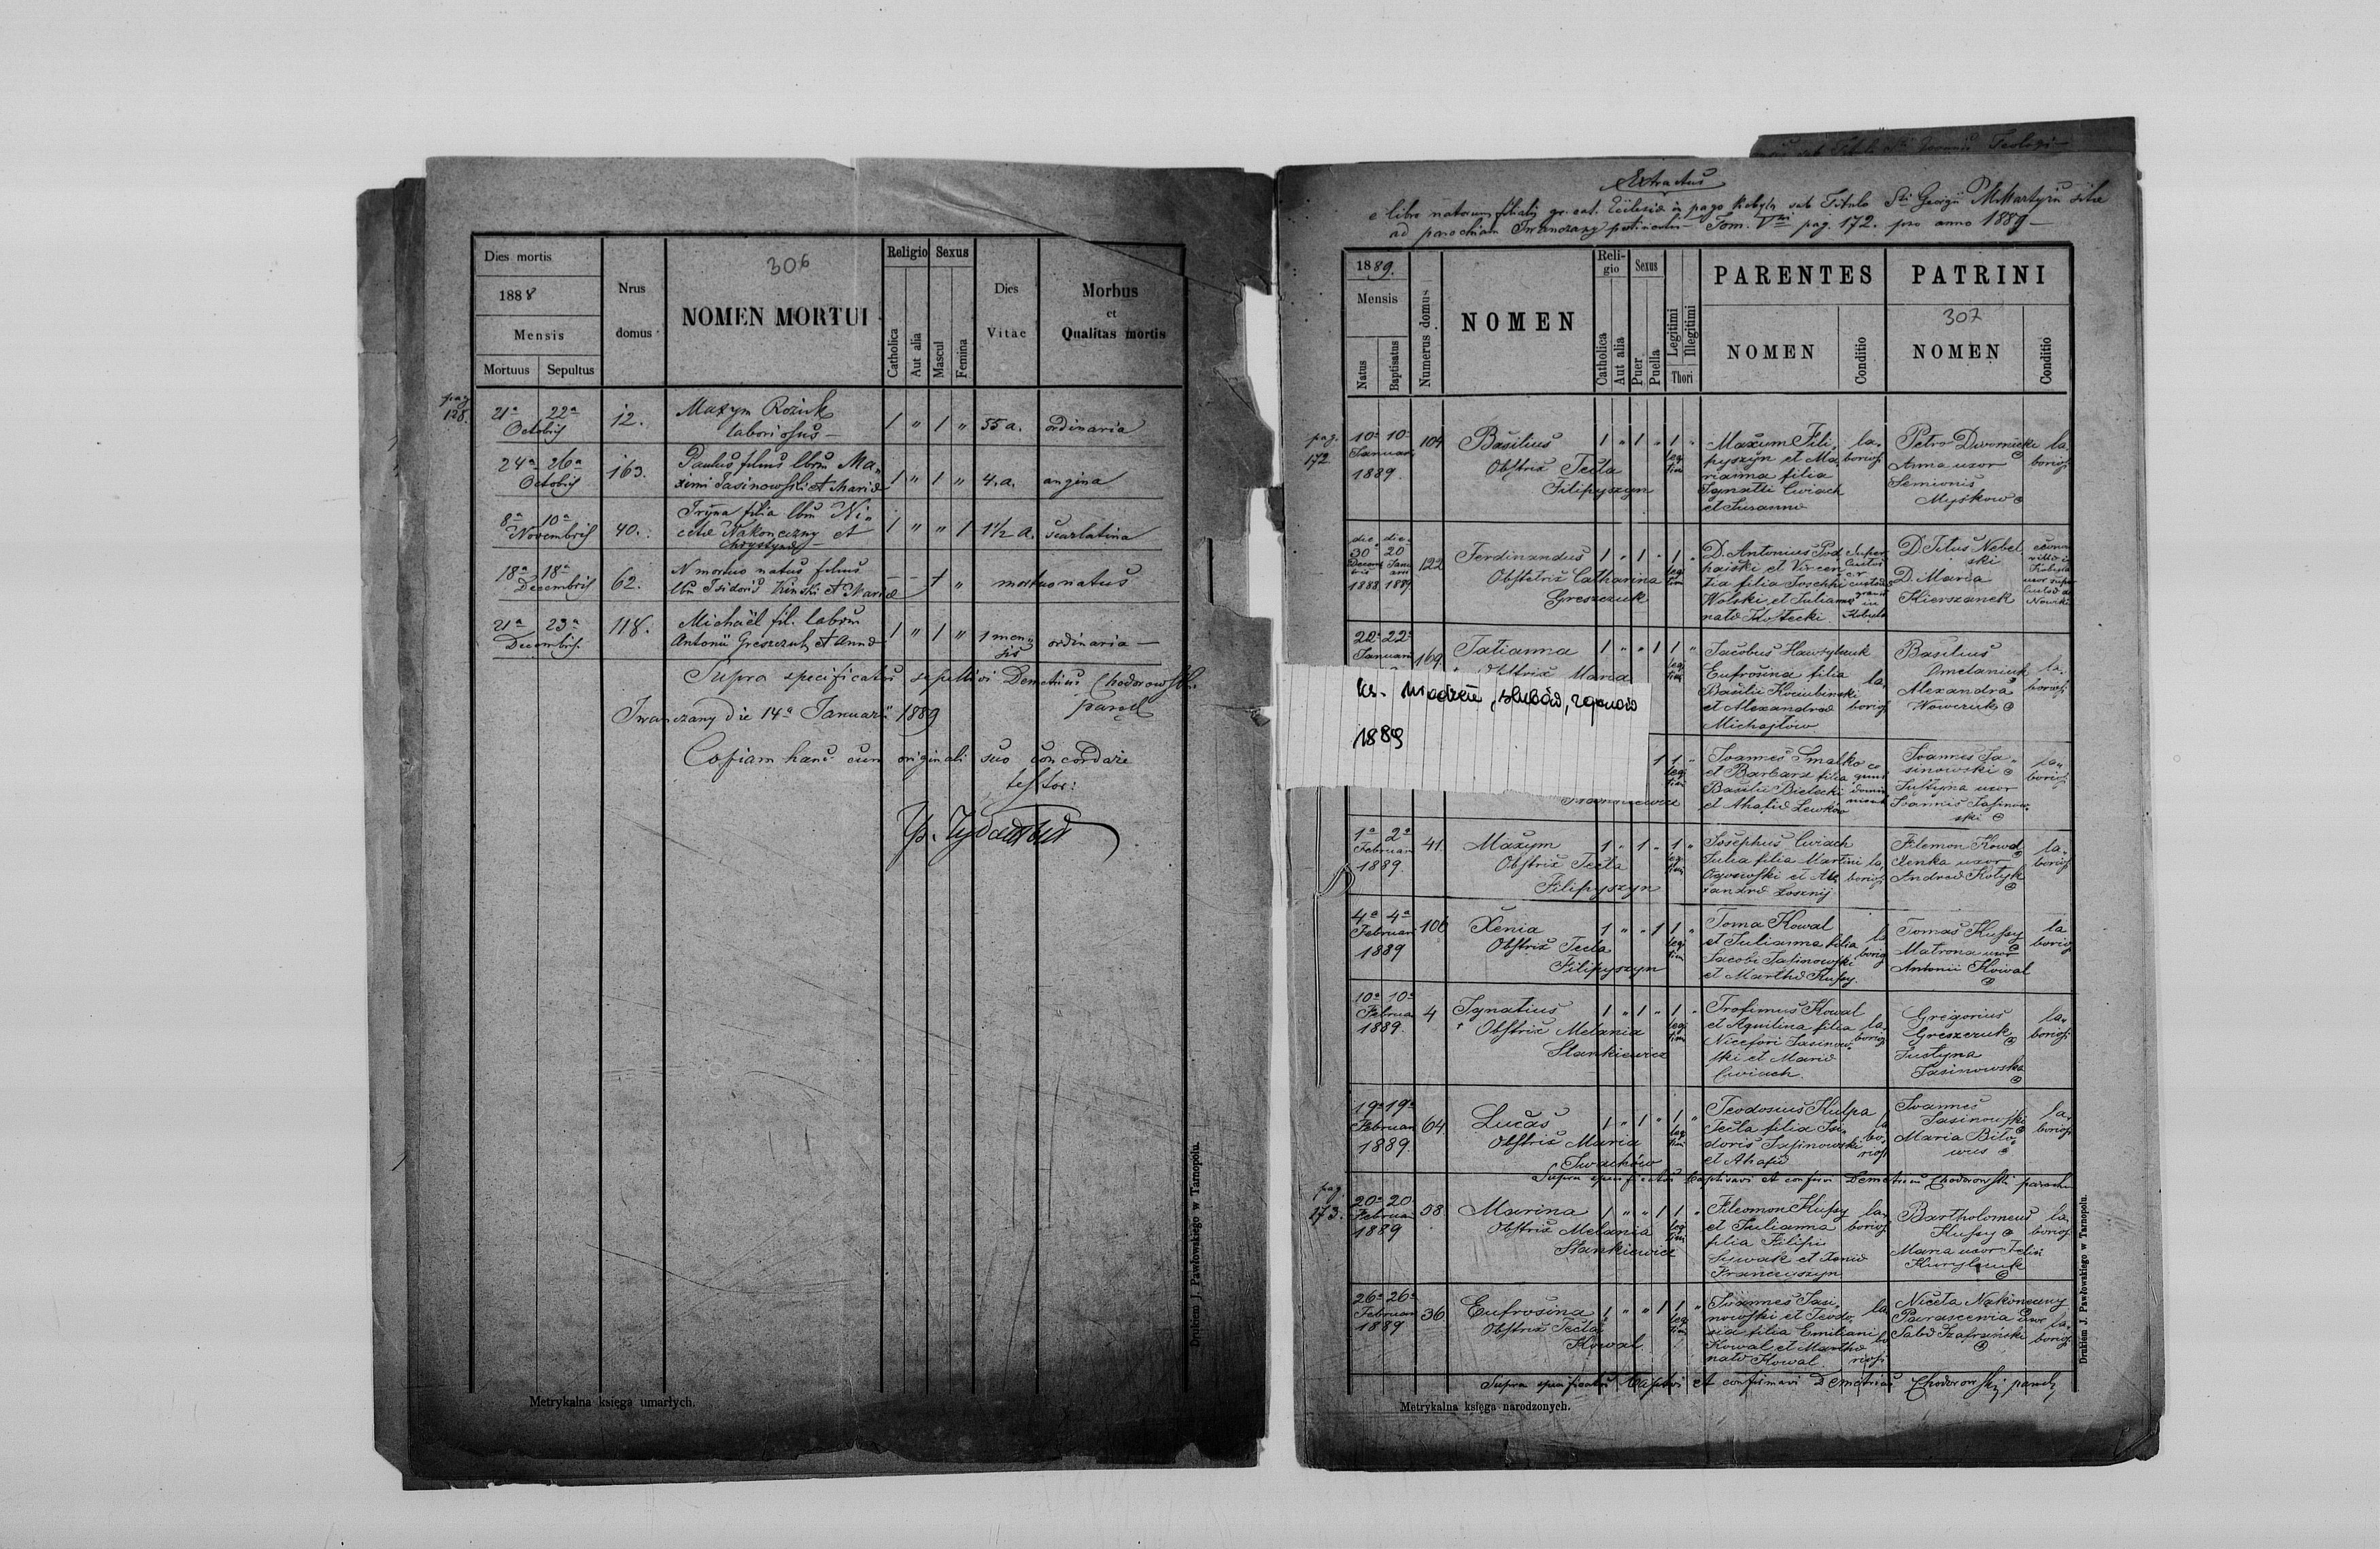 Dies mortis
1888
Mensis
Mortuus Sepultus
Nrus domus
306
NOMEN MORTUI
Religio Sexus
Catholica
Aut alia
Mascul
Femina
Dies Vitae
Morbus
et
Qualitas mortis
pag 128.
21a 22a
Octobris
12.
Maxym Rozick
laboriosus
1 " 1 "
55 a.
ordinaria
24a 26a
Octobris
163.
Paulus filius lbru Ma„
ximi Jasinowski et Mariæ
1 " 1 "
4. a.
angina
8a 10a
Novembris
40.
Iryna filia lbru Ni„
cetæ Nakoneczny et
Chrystynæ
1 " " 1
1½ a.
scarlatina
18a 18a
Decembris
62.
N mortuo natus filius
lbru Isidoris Kinski et Mariæ
mortuo natus
21a 23a
Decembris.
118.
Michaël fil. labru
Antonii Greszczuk et Annæ
1 " 1 "
1 men„
sis
ordinaria
Supra specificatos sepelivi Demetrius Chodorowski
paroch
Iwanczany die 14a Januarii 1889
Copiam hanc cum originali suo concordare
testor:
Metrykalna księga umarłych.
Drukiem J. Pawłowskiego w Tarnopolu.
Extractus
e libro natorum filialis gr. cat. Ecclesiæ in pago Kobyla sub Titulo Sti Georgii M. Martyris sitæ
ad parochiam Iwanczany pertinentis Tom. Vti pag. 172. pro anno 1889
1889.
Mensis
Natus
Baptisatus
Numerus domus
NOMEN
Reli-
gio
Sexus
Catholica
Aut alia
Puer
Puella
Legitimi
Illegitimi
Thori
PARENTES
NOMEN
Conditio
PATRINI
307
NOMEN
Conditio
pag. 172
10a 10a
Januar
1889.
104
Basilius
Obstrix Tecla
Filipyszyn
1 " 1 " 1 "
leg
tim
Maxum Fili„
pyszyn et Ma„
rianna filia
Ignatii Cwiach
et Susannæ
la„
boriosi
Petro Dwornicki
Anna uxor
Semionis
Myskow
la
boriosi
die die
30 20
Decem Janu
bris arii
1888 1889
122
Ferdinandus
Obstetrix Catharina
Greszczuk
1 " 1 " 1 "
leg
tim
D. Antonius Pod
hajski et Vincen
tia filia Josephi
Wolski et Julianæ
natæ Kostecki
D. Titus Nebel
ski
D. Maria
Kierszanek
22a 22a
Januarii
169.
Tatianna
Obstrix Maria
1 " " 1 1 "
leg
tim
Jacobus Hawrylczuk
Eufrosina filia
Basilii Kociubinski
et Alexandræ
Michajlow
la„
boriosi
Basilius
Omelaniuk
Alexandra
Wowczuk
la„
boriosi
ks. urodzeń, ślubów, zgonów
1889
1 1 "
leg
tim
Ioannes Smalko
et Barbara filia
Basilii Bielecki
et Ahafiæ Lewkow
Ioannes Ja„
sinowski
Justyna uxor
Ioannis Jasinow„
ski
la„
boriosi
1a 2a
Februar
1889.
41
Maxym
Obstrix Tecla
Filipyszyn
1 " 1 " 1 "
leg
tim
Josephus Cwiach
Julia filia Martini
la„
boriosi
Filemon Kowal
Xenka uxor
Andreæ Kotyk
la„
boriosi
4a 4a
Februar
1889
106
Xenia
Obstrix Tecla
Filipyszyn
1 " " 1 1 "
leg
tim
Toma Kowal
et Julianna filia
Jacobi Jasinowski
et Marthæ Kussy.
la
boriosi
Tomas Kussy
Matrona uxor
Antonii Kowal
la
boriosi
10a 10a
Februar
1889.
4
Ignatius
Obstrix Melania
Stankiewicz
1 " 1 " 1 "
leg
tim
Trofimus Kowal
et Aquilina filia
Nicefori Jasinow„
ski et Mariæ
Cwiach.
la„
boriosi
Gregorius
Greszczuk
Justyna
Jasinowska
la„
boriosi
19a 19a
Februar
1889.
64
Lucas
Obstrix Maria
Iwachów
1 " 1 " 1 "
leg
tim
Teodosius Kulpa
Tecla filia Isi„
doris Jasinowski
et Ahafiæ
la
bo„
riosi
Ioannes
Jasinowski
Maria Bilo„
wus
la„
boriosi
Supra specificatos baptisavi et confirmavi Demetrius Chodorowski parochus
pag. 173.
20a 20
Februar
1889
58
Marina
Obstrix Melania
Stankiewicz
1 " " 1 1 "
leg
tim
Fileomon Kussy
et Julianna
filia Filipi
Spiwak et Xeniæ
Franciszyn
la„
boriosi
Bartholomeus
Kussy
Maria uxor Felix
Kurylczuk
la„
boriosi
26a 26a
Februar
1889
36
Eufrosina
Obstrix Tecla
Kowal
1 " " 1 1 "
leg
tim
Ioannes Jasi„
nowski et Teodo„
sia filia Emiliani
Kowal et Marthæ
natæ Kowal
la
bo
riosi
Niceta Nakoneczny
Parascewia uxor
Sabæ Szafranski
la„
boriosi
Supra specificatos baptisavi et confirmavi Demetrius Chodorowski paroch
Metrykalna księga narodzonych.
Drukiem J. Pawłowskiego w Tarnopolu.